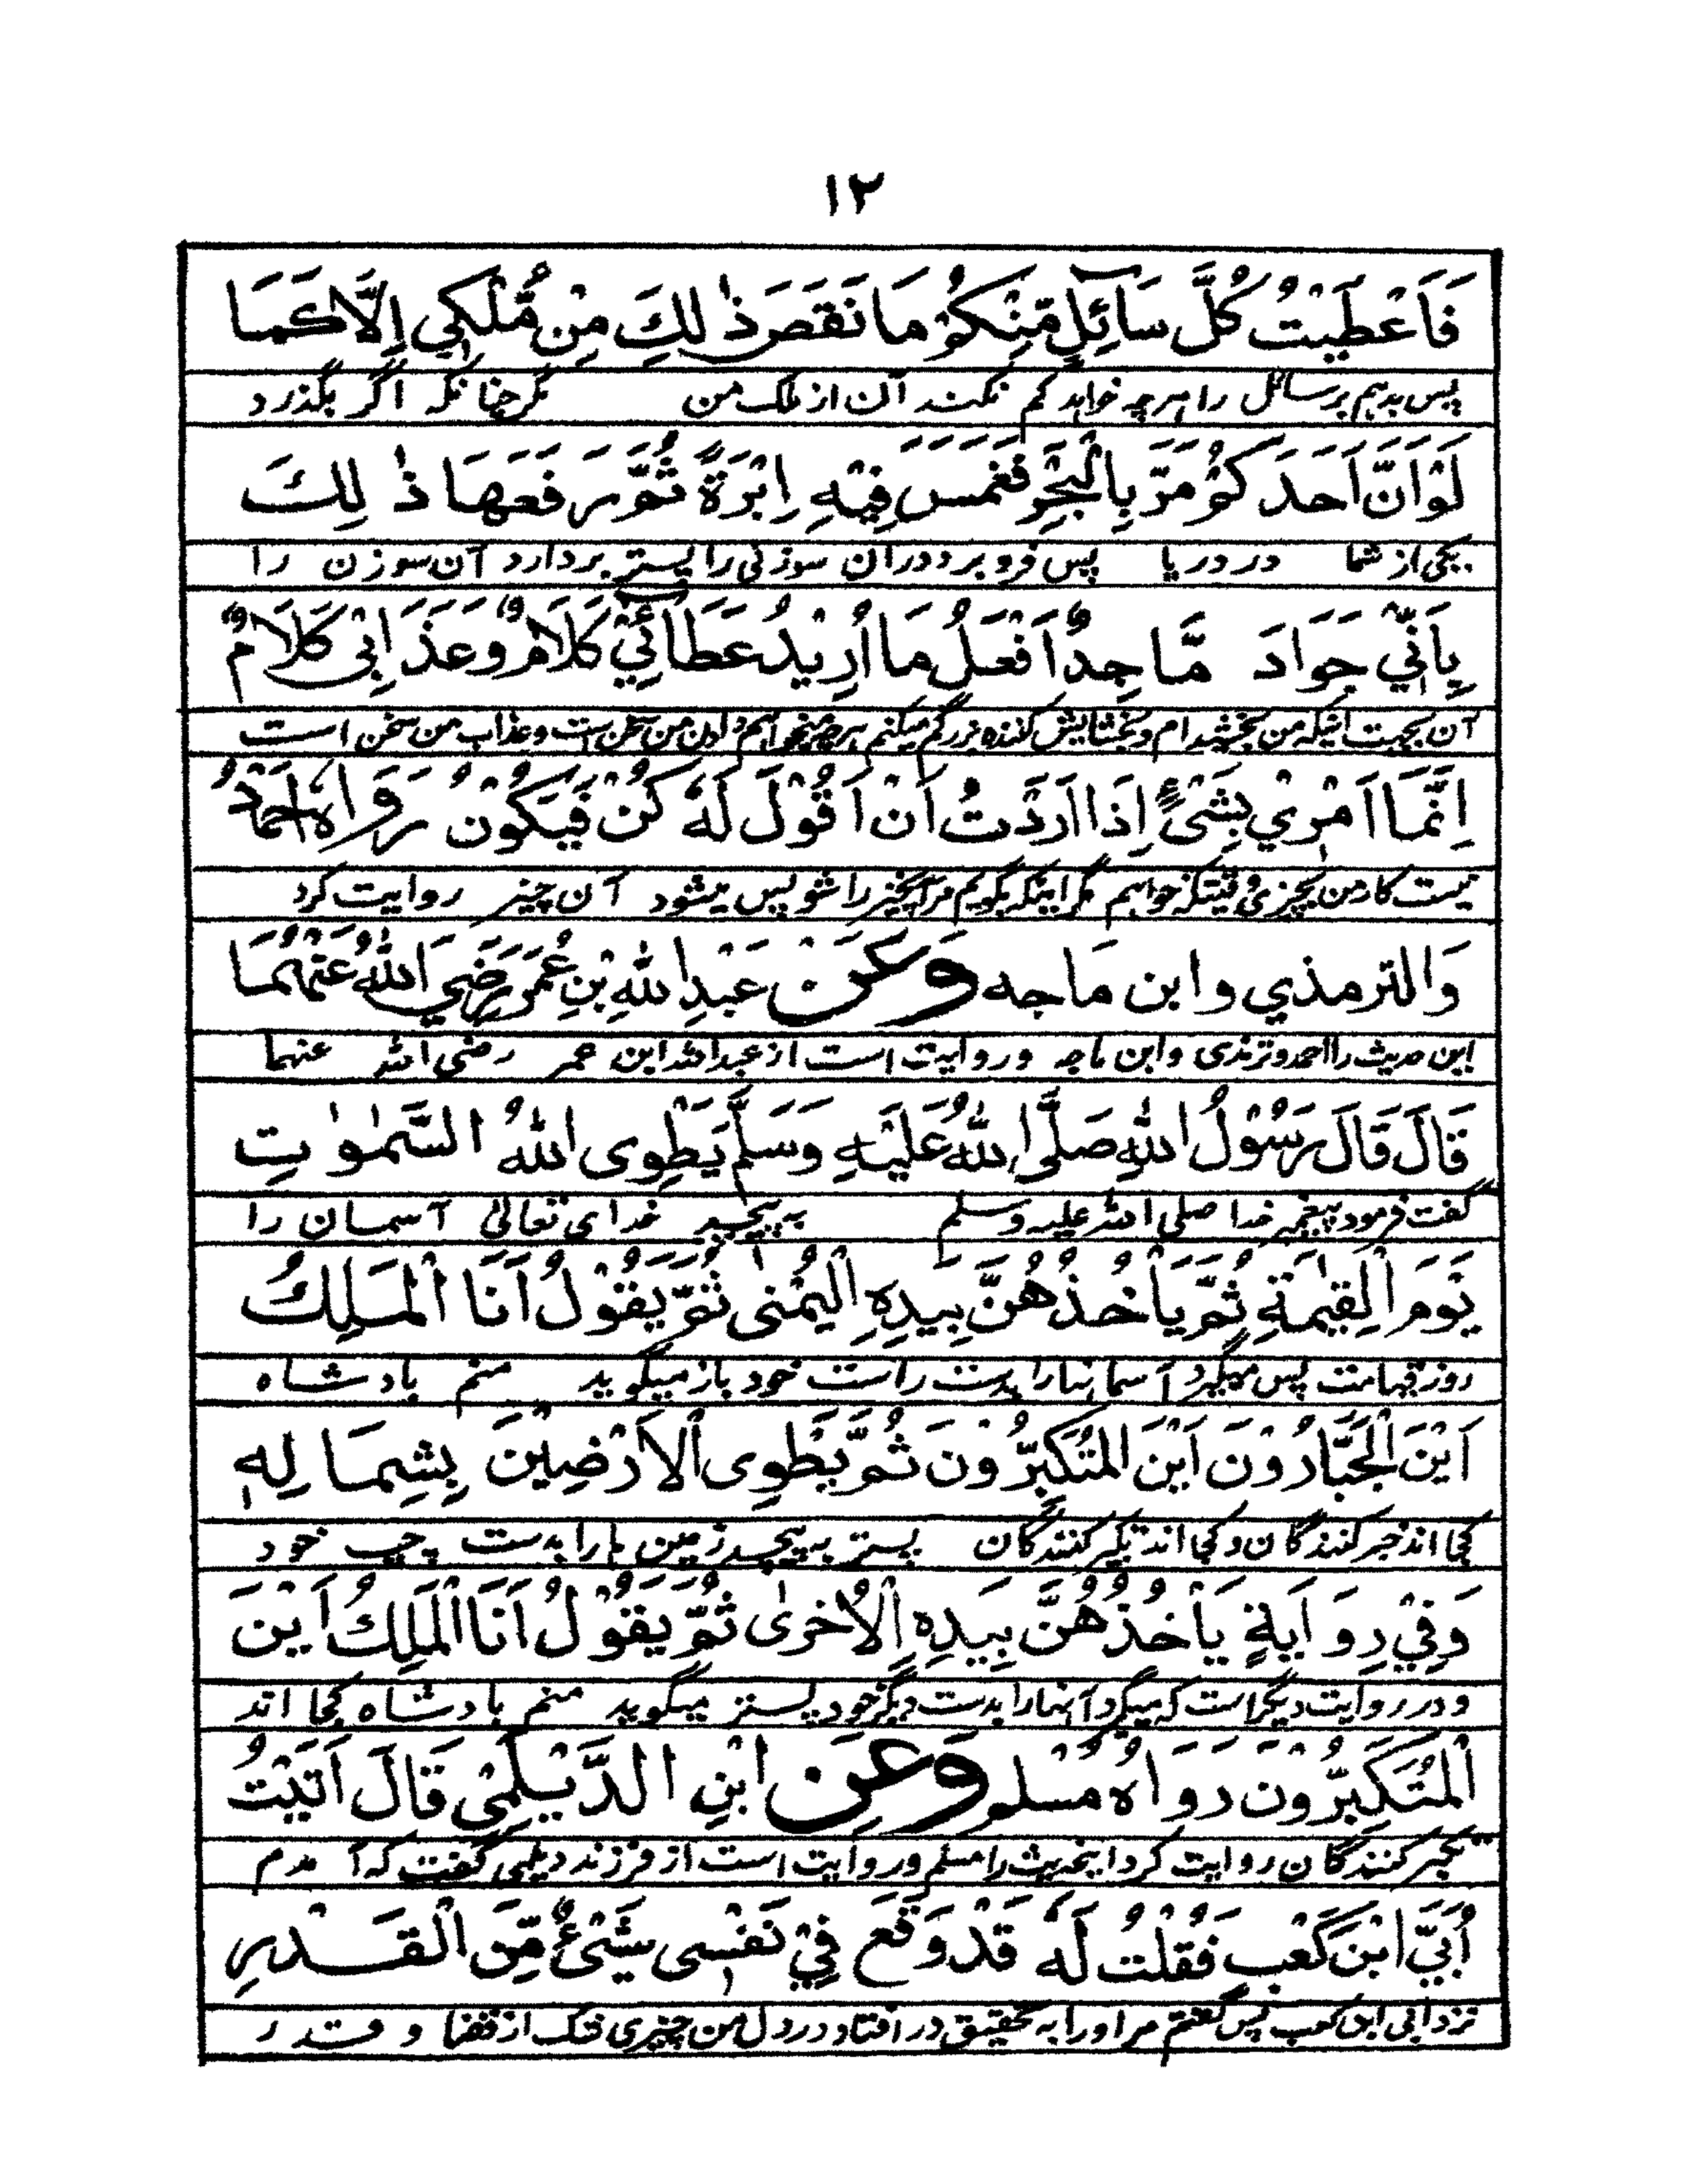 ١٢
فَاَعْطَيْتُ كُلَّ سَآئِلٍ مِّنْكُمْ مَا نَقَصَ ذٰلِكَ مِنْ مُّلْكِي اِلَّا كَمَا
پس بدہم ہر سائل را ہر چہ خواہد کم نکند آن از ملک من مگر چنانکہ اگر بگذرد
لَوْ اَنَّ اَحَدَكُمْ مَرَّ بِالْبَحْرِ فَغَمَسَ فِيْهِ اِبْرَةً ثُمَّ رَفَعَهَا ذٰلِكَ
یکی از شما در دریا پس فرو برد دران سوزنی را پستر بردارد آن سوزن را
بِاَنِّيْ جَوَادَ مَّاجِدٌ اَفْعَلُ مَا اُرِيْدُ عَطَآئِيْ كَلَامٌ وَعَذَابِىْ كَلَامٌ
آن بجہت اینکہ من بخشندہ ام و بخشایش کنندہ بزرگم میکنم ہر چہ میخواہم دادن من سخن است و عذاب من سخن است
اِنَّمَا اَمْرِيْ بِشَىْءٍ اِذَا اَرَدْتُ اَنْ اَقُوْلَ لَهٗ كُنْ فَيَكُوْنُ رَوَاهُ اَحْمَدُ
نیست کار من بچیزی وقتیکہ خواہم مگر اینکہ بگویم مر آنچیز را شو پس میشود آن چیز روایت کرد
وَالترمذي وابن ماجه وَعَنْ عَبْدِ اللهِ بْنِ عُمَرَ رَضِيَ اللهُ عَنْهُمَا
این حدیث را احمد و ترمذی و ابن ماجہ و روایت است از عبداللہ ابن عمر رضی اللہ عنہما
قَالَ قَالَ رَسُوْلُ اللهِ صَلَّى اللهُ عَلَيْهِ وَسَلَّمَ يَطْوِى اللهُ السَّمٰوٰتِ
گفت فرمود پیغمبر خدا صلی اللہ علیہ وسلم بہ پیچد خدای تعالیٰ آسمان را
يَوْمَ الْقِيٰمَةِ ثُمَّ يَاْخُذُهُنَّ بِيَدِهِ الْيُمْنٰى ثُمَّ يَقُوْلُ اَنَا الْمَلِكُ
روز قیامت پس میگیرد آسمانہا را بدست راست خود باز میگوید منم بادشاہ
اَيْنَ الْجَبَّارُوْنَ اَيْنَ الْمُتَكَبِّرُوْنَ ثُمَّ يَطْوِى الْاَرْضِيْنَ بِشِمَالِهٖ
کجا اند جبر کنندگان و کجا اند تکبر کنندگان پستر بہ پیچد زمین ہا را بدست چپ خود
وَفِيْ رِوَايَةٍ يَاْخُذُهُنَّ بِيَدِهِ الْاُخْرٰى ثُمَّ يَقُوْلُ اَنَا الْمَلِكُ اَيْنَ
و در روایت دیگر است کہ میگیرد آنہا را بدست دیگر خود پستر میگوید منم بادشاہ کجا اند
الْمُتَكَبِّرُوْنَ رَوَاهُ مُسْلم وَعَنِ ابْنِ الدَّيْلَمِىْ قَالَ اَتَيْتُ
تکبر کنندگان روایت کرد اینحدیث را مسلم و روایت است از فرزند دیلمی گفت کہ آمدم
اُبَيَّ ابْنَ كَعْبٍ فَقُلْتُ لَهٗ قَدْ وَقَعَ فِيْ نَفْسِى شَىْءٌ مِّنَ الْقَدْرِ
نزد ابی ابن کعب پس گفتم مر اورا بہ تحقیق در افتاد در دل من چیزی شک از قضا و قدر